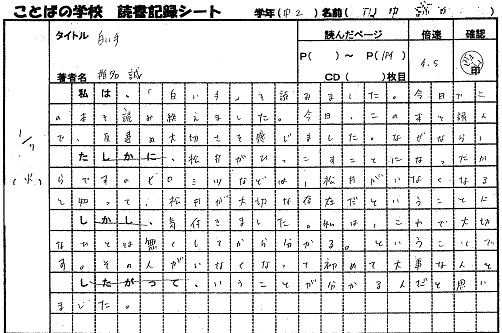 ことばの学校 読書記録シート 学年(中2)名前( )
タイトル 白い手
読んだページ
倍速
確認
P( )～ P(194)
CD( )枚目
4.5
印
著者名 椎名 誠
私は、「白い手」を読みました。今日でこ
の本を読み終えました。今日、この本を読ん
で、友達の大切さを感じました。なぜなら、
たしかに、松井がひっこすことになったか
らです。
と知って、松井が大切な存在だということに
しかし、気付きました。私は、これで大切
なひとは無くしてから分かる。ということで
す。その人がいなくなって初めて大事な人と
したがって、いうことが分かる人だと思い
ました。
1/7
(火)